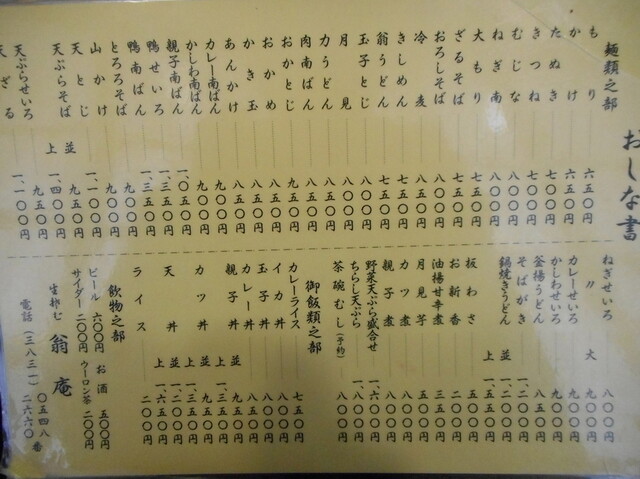 おしな書
麺類之部
もり 六五〇円
かけ 六五〇円
たぬき 七〇〇円
きつね 七〇〇円
むじな 八〇〇円
ねぎ南 八〇〇円
大もり 七五〇円
ざるそば 七五〇円
おろしそば 八〇〇円
冷麦 七五〇円
きしめん 七五〇円
翁うどん 七五〇円
玉子とじ 八〇〇円
月見 八〇〇円
力うどん 八五〇円
肉南ばん 八五〇円
おかとじ 九五〇円
おかめ 八五〇円
かき玉 八五〇円
あんかけ 八五〇円
カレー南ばん 九〇〇円
かしわ南ばん 九〇〇円
親子南ばん 一、〇五〇円
鴨せいろ 一、三五〇円
鴨南ばん 一、三五〇円
とろろそば 九〇〇円
山かけ 九〇〇円
天とじ 一、一〇〇円
天ぷらそば 並 九五〇円
上 一、四〇〇円
天ぷらせいろ 九五〇円
天ざる 一、一〇〇円
ねぎせいろ 八〇〇円
〃 大 九〇〇円
カレーせいろ 九〇〇円
かしわせいろ 九〇〇円
釜揚うどん 八五〇円
そばがき
鍋焼きうどん 並
上 一、五五〇円
板わさ 五〇〇円
お新香
油揚甘辛煮 三五〇円
月見芋 五五〇円
カツ煮 八〇〇円
親子煮 八〇〇円
野菜天ぷら盛合せ
ちらし天ぷら
茶碗むし(予約) 八〇〇円
御飯類之部
カレーライス 七五〇円
イカ丼 八〇〇円
玉子丼 八〇〇円
カレー丼 八五〇円
親子丼 並 九〇〇円
上 一、三五〇円
カツ丼 並 九五〇円
上 一、三五〇円
天丼 並
上 一、六五〇円
ライス 二〇〇円
飲物之部
ビール 六〇〇円 お酒 五〇〇円
サイダー 二〇〇円 ウーロン茶 二〇〇円
生粋む 翁庵
〇五四八番
電話(三八三一)二六六〇